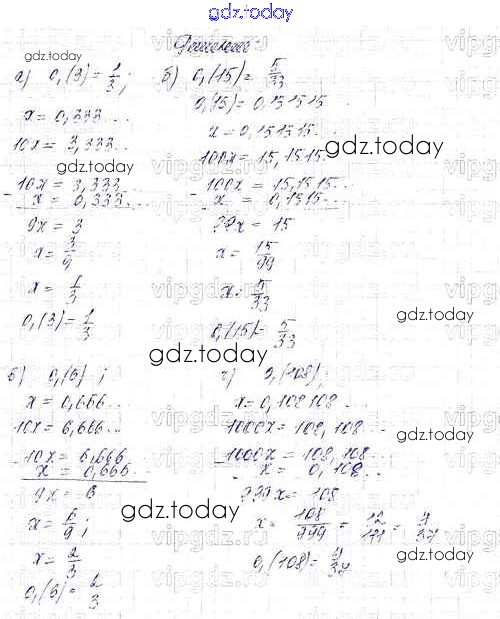 gdz.today
Решение:
а) 0,(3) = 1/3;
x = 0,333...
10x = 3,333...
10x = 3,333
- x = 0,333...
9x = 3
x = 3/9
x = 1/3
0,(3) = 1/3
б) 0,(15) = 5/33
0,(15) = 0,151515...
x = 0,151515...
100x = 15,1515...
100x = 15,1515...
- x = 0,1515...
99x = 15
x = 15/99
x = 5/33
0,(15) = 5/33
в) 0,(6);
x = 0,666...
10x = 6,666...
10x = 6,666...
- x = 0,666...
9x = 6
x = 6/9;
x = 2/3
0,(6) = 2/3
г) 0,(108);
x = 0,108108...
1000x = 108,108...
1000x = 108,108...
- x = 0,108...
999x = 108
x = 108/999 = 12/111 = 4/37
0,(108) = 4/37
gdz.today
gdz.today
gdz.today
gdz.today
gdz.today
gdz.today
gdz.today
gdz.today
gdz.today